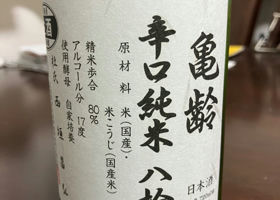 亀齢
辛口純米 八拾
原材料 米(国産)・
米こうじ(国産米)
精米歩合 80%
アルコール分 17度
使用酵母 自家培養
杜氏 西垣
日本酒
酒